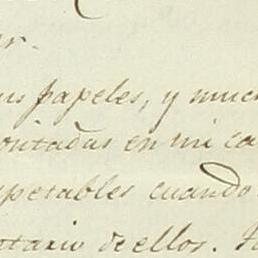 r.
us papeles, y muc
ontadas en mi ca
petables cuando
tario de ellos.